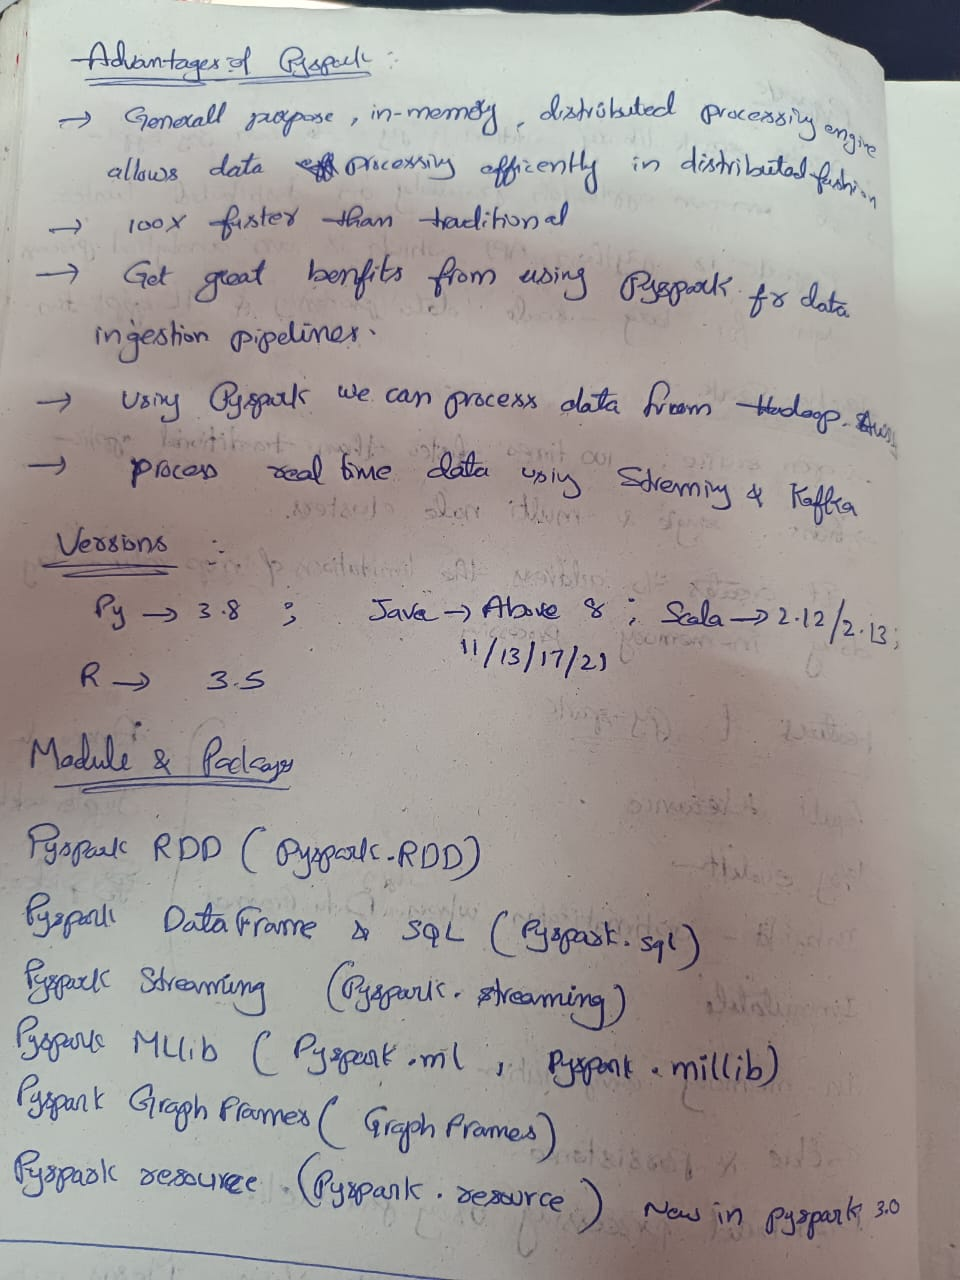 Advantages of Pyspark :
→ Generall purpose, in-memory, distributed processing engine
allows data processing efficently in distributed fashion
→ 100X faster than traditional
→ Get great benfits from using Pyspark fr data
ingestion pipelines.
→ Using Pyspark we can process data from Hadoop.
→ process real time data using Streming & Kafka
Versions :
Py → 3.8 ; Java → Above 8 ; Scala → 2.12/2.13;
11/13/17/21
R → 3.5
Module & Packages
Pyspark RDD (Pyspark.RDD)
Pyspark DataFrame & SQL (Pyspark.sql)
Pyspark Streaming (Pyspark.streaming)
Pyspark MLlib (Pyspark.ml, Pyspark.millib)
Pyspark Graph Frames (Graph Frames)
Pyspark resource (Pyspark.resource) New in pyspark 3.0